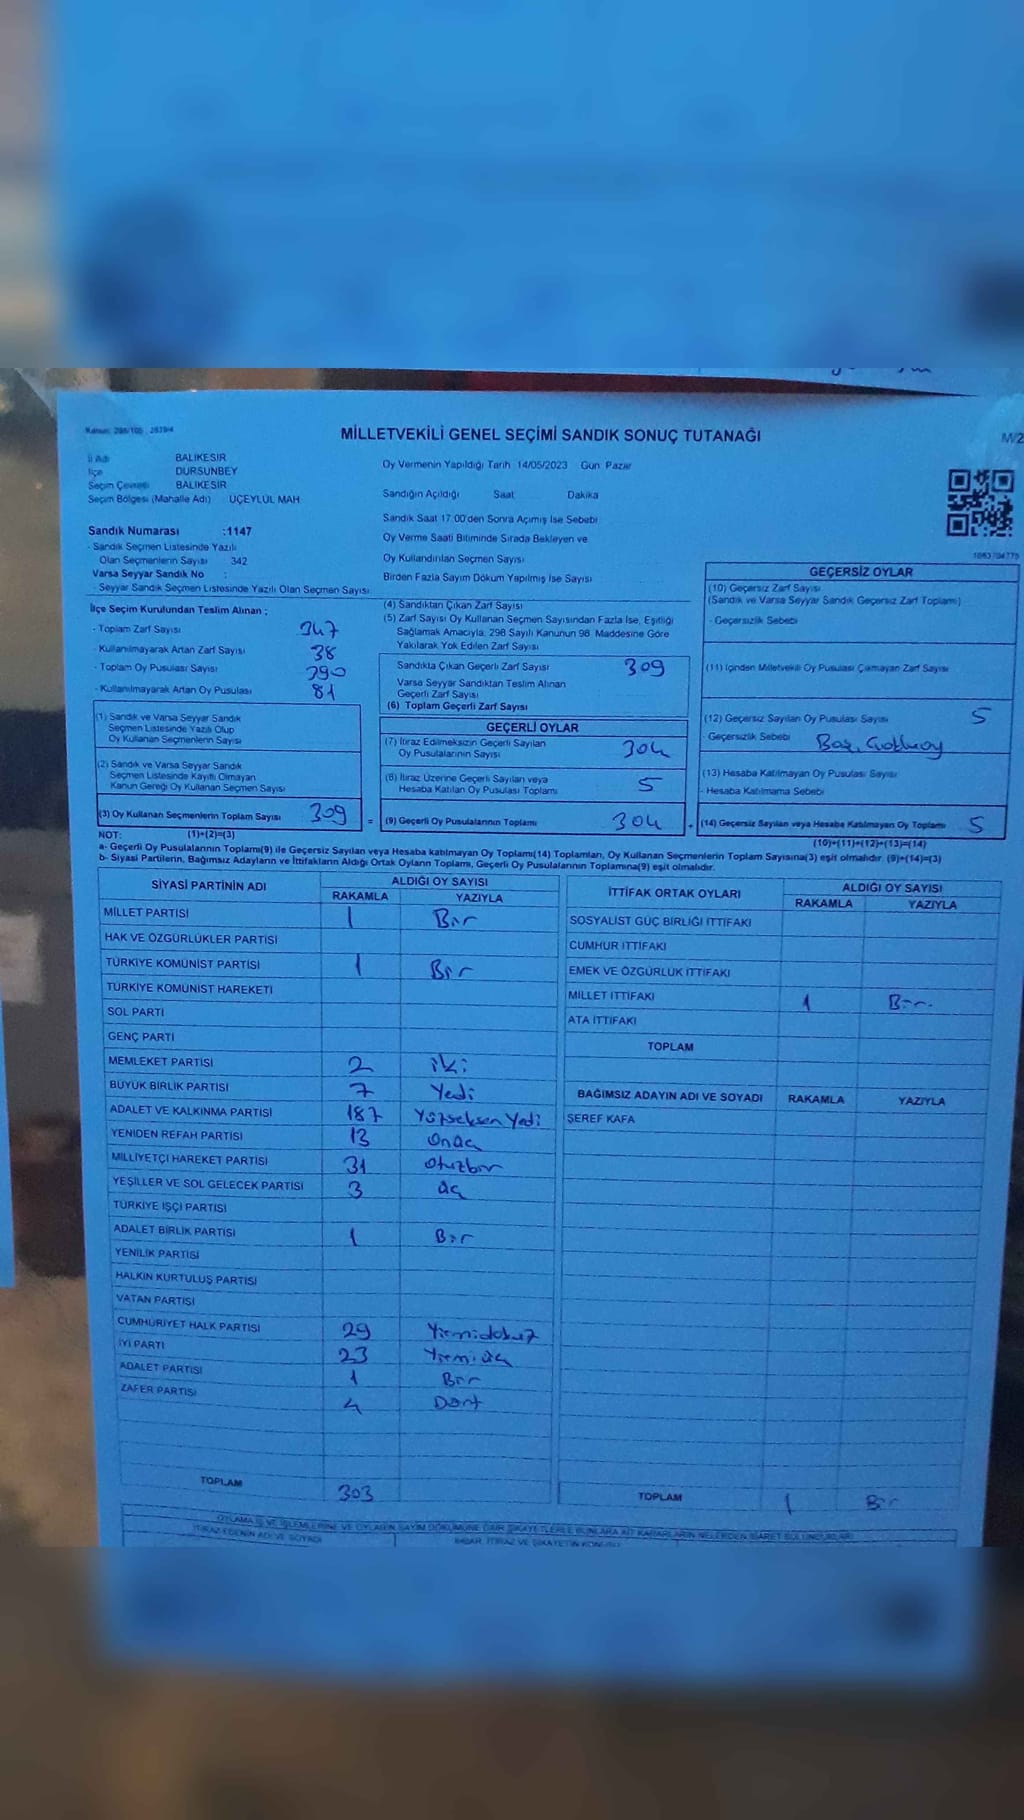 Kanun: 298/105, 2839/4
MİLLETVEKİLİ GENEL SEÇİMİ SANDIK SONUÇ TUTANAĞI
M/2
İl Adı BALIKESİR
İlçe DURSUNBEY
Seçim Çevresi BALIKESİR
Seçim Bölgesi (Mahalle Adı) ÜÇEYLÜL MAH
Oy Vermenin Yapıldığı Tarih 14/05/2023 Gün Pazar
Sandığın Açıldığı Saat Dakika
Sandık Saat 17:00'den Sonra Açımış İse Sebebi
Oy Verme Saati Bitiminde Sırada Bekleyen ve
Oy Kullandırılan Seçmen Sayısı
Birden Fazla Sayım Döküm Yapılmış İse Sayısı
Sandık Numarası :1147
- Sandık Seçmen Listesinde Yazılı
Olan Seçmenlerin Sayısı 342
Varsa Seyyar Sandık No :
- Seyyar Sandık Seçmen Listesinde Yazılı Olan Seçmen Sayısı
İlçe Seçim Kurulundan Teslim Alınan ;
- Toplam Zarf Sayısı 347
- Kullanılmayarak Artan Zarf Sayısı 38
- Toplam Oy Pusulası Sayısı 390
- Kullanılmayarak Artan Oy Pusulası 81
(1) Sandık ve Varsa Seyyar Sandık
Seçmen Listesinde Yazılı Olup
Oy Kullanan Seçmenlerin Sayısı
(2) Sandık ve Varsa Seyyar Sandık
Seçmen Listesinde Kayıtlı Olmayan
Kanun Gereği Oy Kullanan Seçmen Sayısı
(3) Oy Kullanan Seçmenlerin Toplam Sayısı 309 =
(4) Sandıktan Çıkan Zarf Sayısı
(5) Zarf Sayısı Oy Kullanan Seçmen Sayısından Fazla İse, Eşitliği
Sağlamak Amacıyla, 298 Sayılı Kanunun 98. Maddesine Göre
Yakılarak Yok Edilen Zarf Sayısı
Sandıkta Çıkan Geçerli Zarf Sayısı 309
Varsa Seyyar Sandıktan Teslim Alınan
Geçerli Zarf Sayısı
(6) Toplam Geçerli Zarf Sayısı
GEÇERLİ OYLAR
(7) İtiraz Edilmeksizin Geçerli Sayılan
Oy Pusulalarının Sayısı 304
(8) İtiraz Üzerine Geçerli Sayılan veya
Hesaba Katılan Oy Pusulası Toplamı 5
(9) Geçerli Oy Pusulalarının Toplamı 304 +
GEÇERSİZ OYLAR
(10) Geçersiz Zarf Sayısı
(Sandık ve Varsa Seyyar Sandık Geçersiz Zarf Toplamı)
- Geçersizlik Sebebi
(11) İçinden Milletvekili Oy Pusulası Çıkmayan Zarf Sayısı
(12) Geçersiz Sayılan Oy Pusulası Sayısı 5
Geçersizlik Sebebi
(13) Hesaba Katılmayan Oy Pusulası Sayısı
- Hesaba Katılmama Sebebi
(14) Geçersiz Sayılan veya Hesaba Katılmayan Oy Toplamı 5
NOT: (1)+(2)=(3)
(10)+(11)+(12)+(13)=(14)
a- Geçerli Oy Pusulalarının Toplamı(9) ile Geçersiz Sayılan veya Hesaba katılmayan Oy Toplamı(14) Toplamları, Oy Kullanan Seçmenlerin Toplam Sayısına(3) eşit olmalıdır. (9)+(14)=(3)
b- Siyasi Partilerin, Bağımsız Adayların ve İttifakların Aldığı Ortak Oyların Toplamı, Geçerli Oy Pusulalarının Toplamına(9) eşit olmalıdır.
SİYASİ PARTİNİN ADI ALDIĞI OY SAYISI
RAKAMLA YAZIYLA
MİLLET PARTİSİ 1 Bir
HAK VE ÖZGÜRLÜKLER PARTİSİ
TÜRKİYE KOMÜNİST PARTİSİ 1 Bir
TÜRKİYE KOMÜNİST HAREKETİ
SOL PARTİ
GENÇ PARTİ
MEMLEKET PARTİSİ 2 iki
BÜYÜK BİRLİK PARTİSİ 7 Yedi
ADALET VE KALKINMA PARTİSİ 187 Yüzseksen Yedi
YENİDEN REFAH PARTİSİ 13 Onüç
MİLLİYETÇİ HAREKET PARTİSİ 31 Otuzbir
YEŞİLLER VE SOL GELECEK PARTİSİ 3 üç
TÜRKİYE İŞÇİ PARTİSİ
ADALET BİRLİK PARTİSİ 1 Bir
YENİLİK PARTİSİ
HALKIN KURTULUŞ PARTİSİ
VATAN PARTİSİ
CUMHURİYET HALK PARTİSİ 29 Yirmidokuz
İYİ PARTİ 23 Yirmiüç
ADALET PARTİSİ 1 Bir
ZAFER PARTİSİ 4 Dört
TOPLAM 303
İTTİFAK ORTAK OYLARI ALDIĞI OY SAYISI
RAKAMLA YAZIYLA
SOSYALİST GÜÇ BİRLİĞİ İTTİFAKI
CUMHUR İTTİFAKI
EMEK VE ÖZGÜRLÜK İTTİFAKI
MİLLET İTTİFAKI 1 Bir.
ATA İTTİFAKI
TOPLAM
BAĞIMSIZ ADAYIN ADI VE SOYADI RAKAMLA YAZIYLA
ŞEREF KAFA
TOPLAM 1 Bir
OYLAMA İŞ VE İŞLEMLERİNE VE OYLARIN SAYIM DÖKÜMÜNE DAİR ŞİKAYETLERLE BUNLARA AİT KARARLARIN NELERDEN İBARET BULUNDUKLARI
İTİRAZ EDENİN ADI VE SOYADI